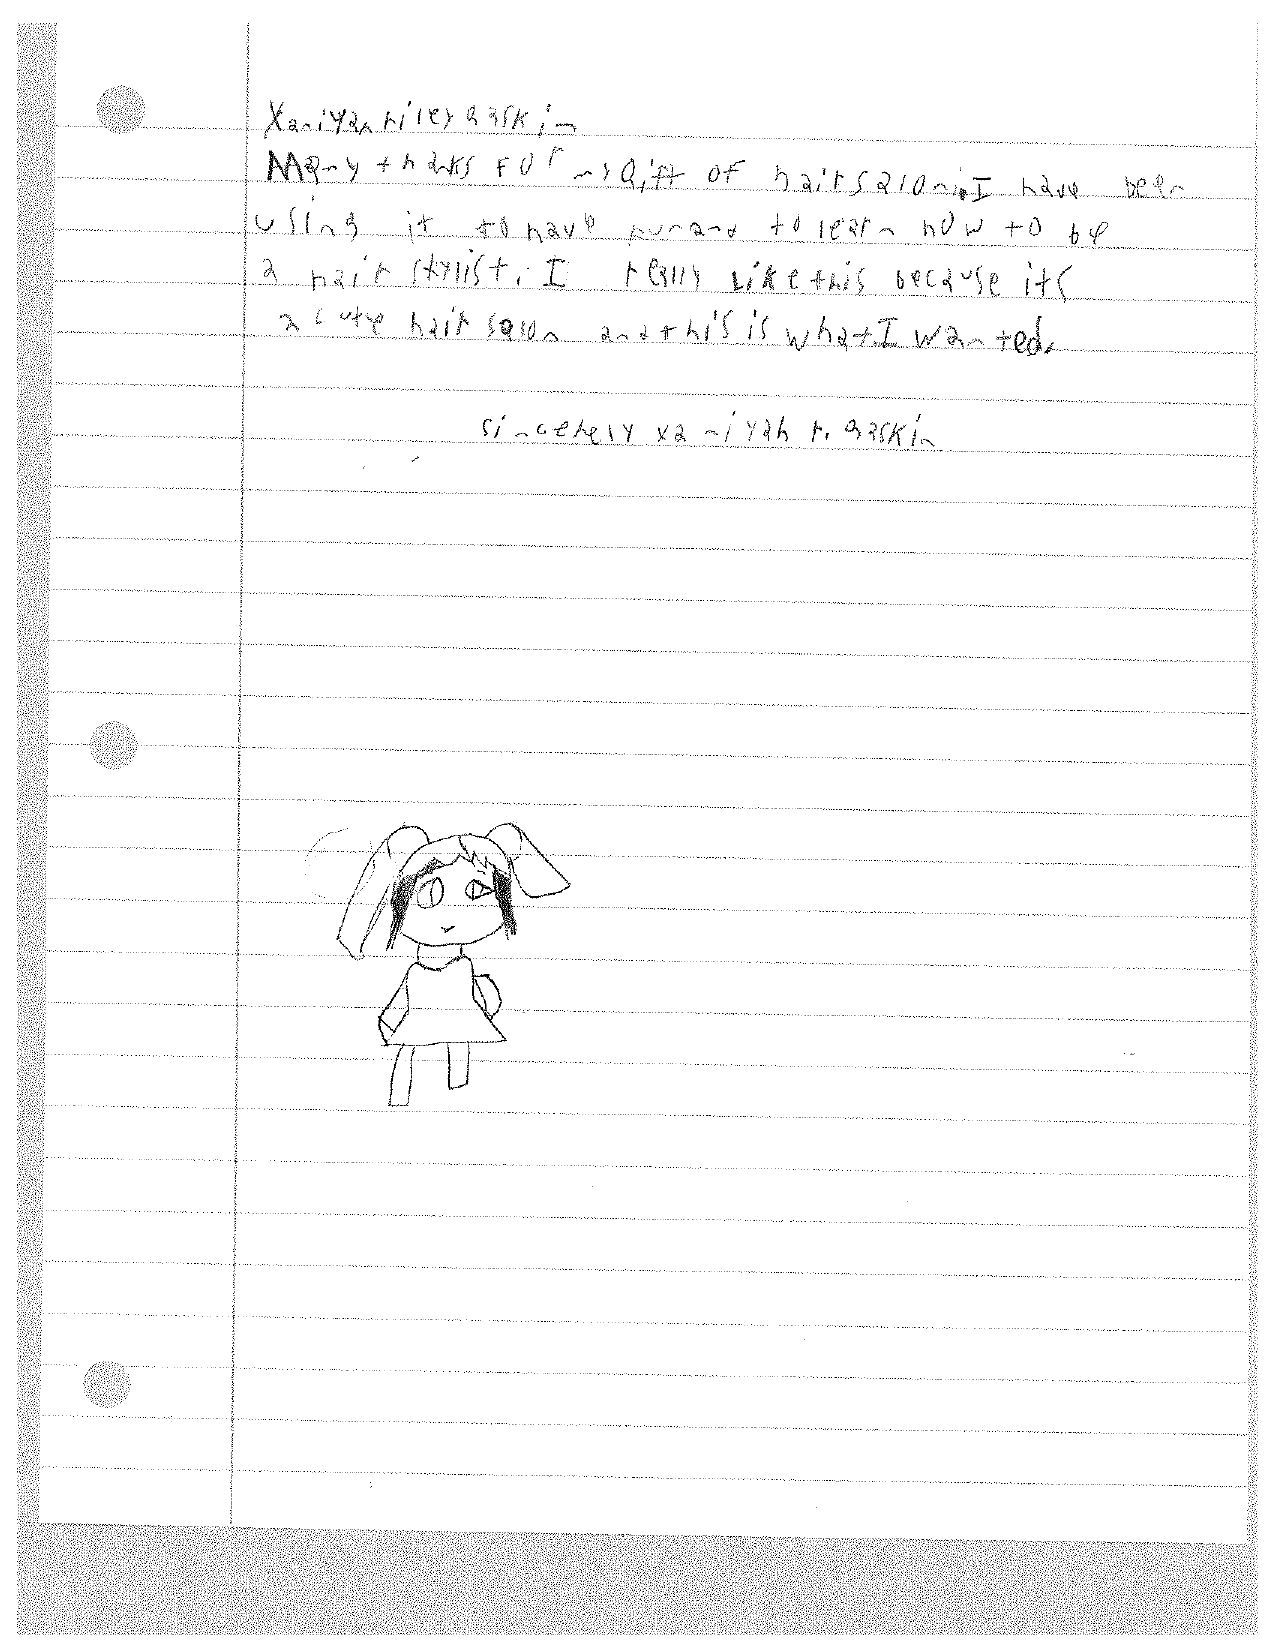 Xaniyah riley gaskin
Many thanks For my gift of hair salon. I have been
using it to have fun and to learn how to be
a hair stylist. I really like this because its
a cute hair salon and this is what I wanted.
sincerely xaniyah r. gaskin